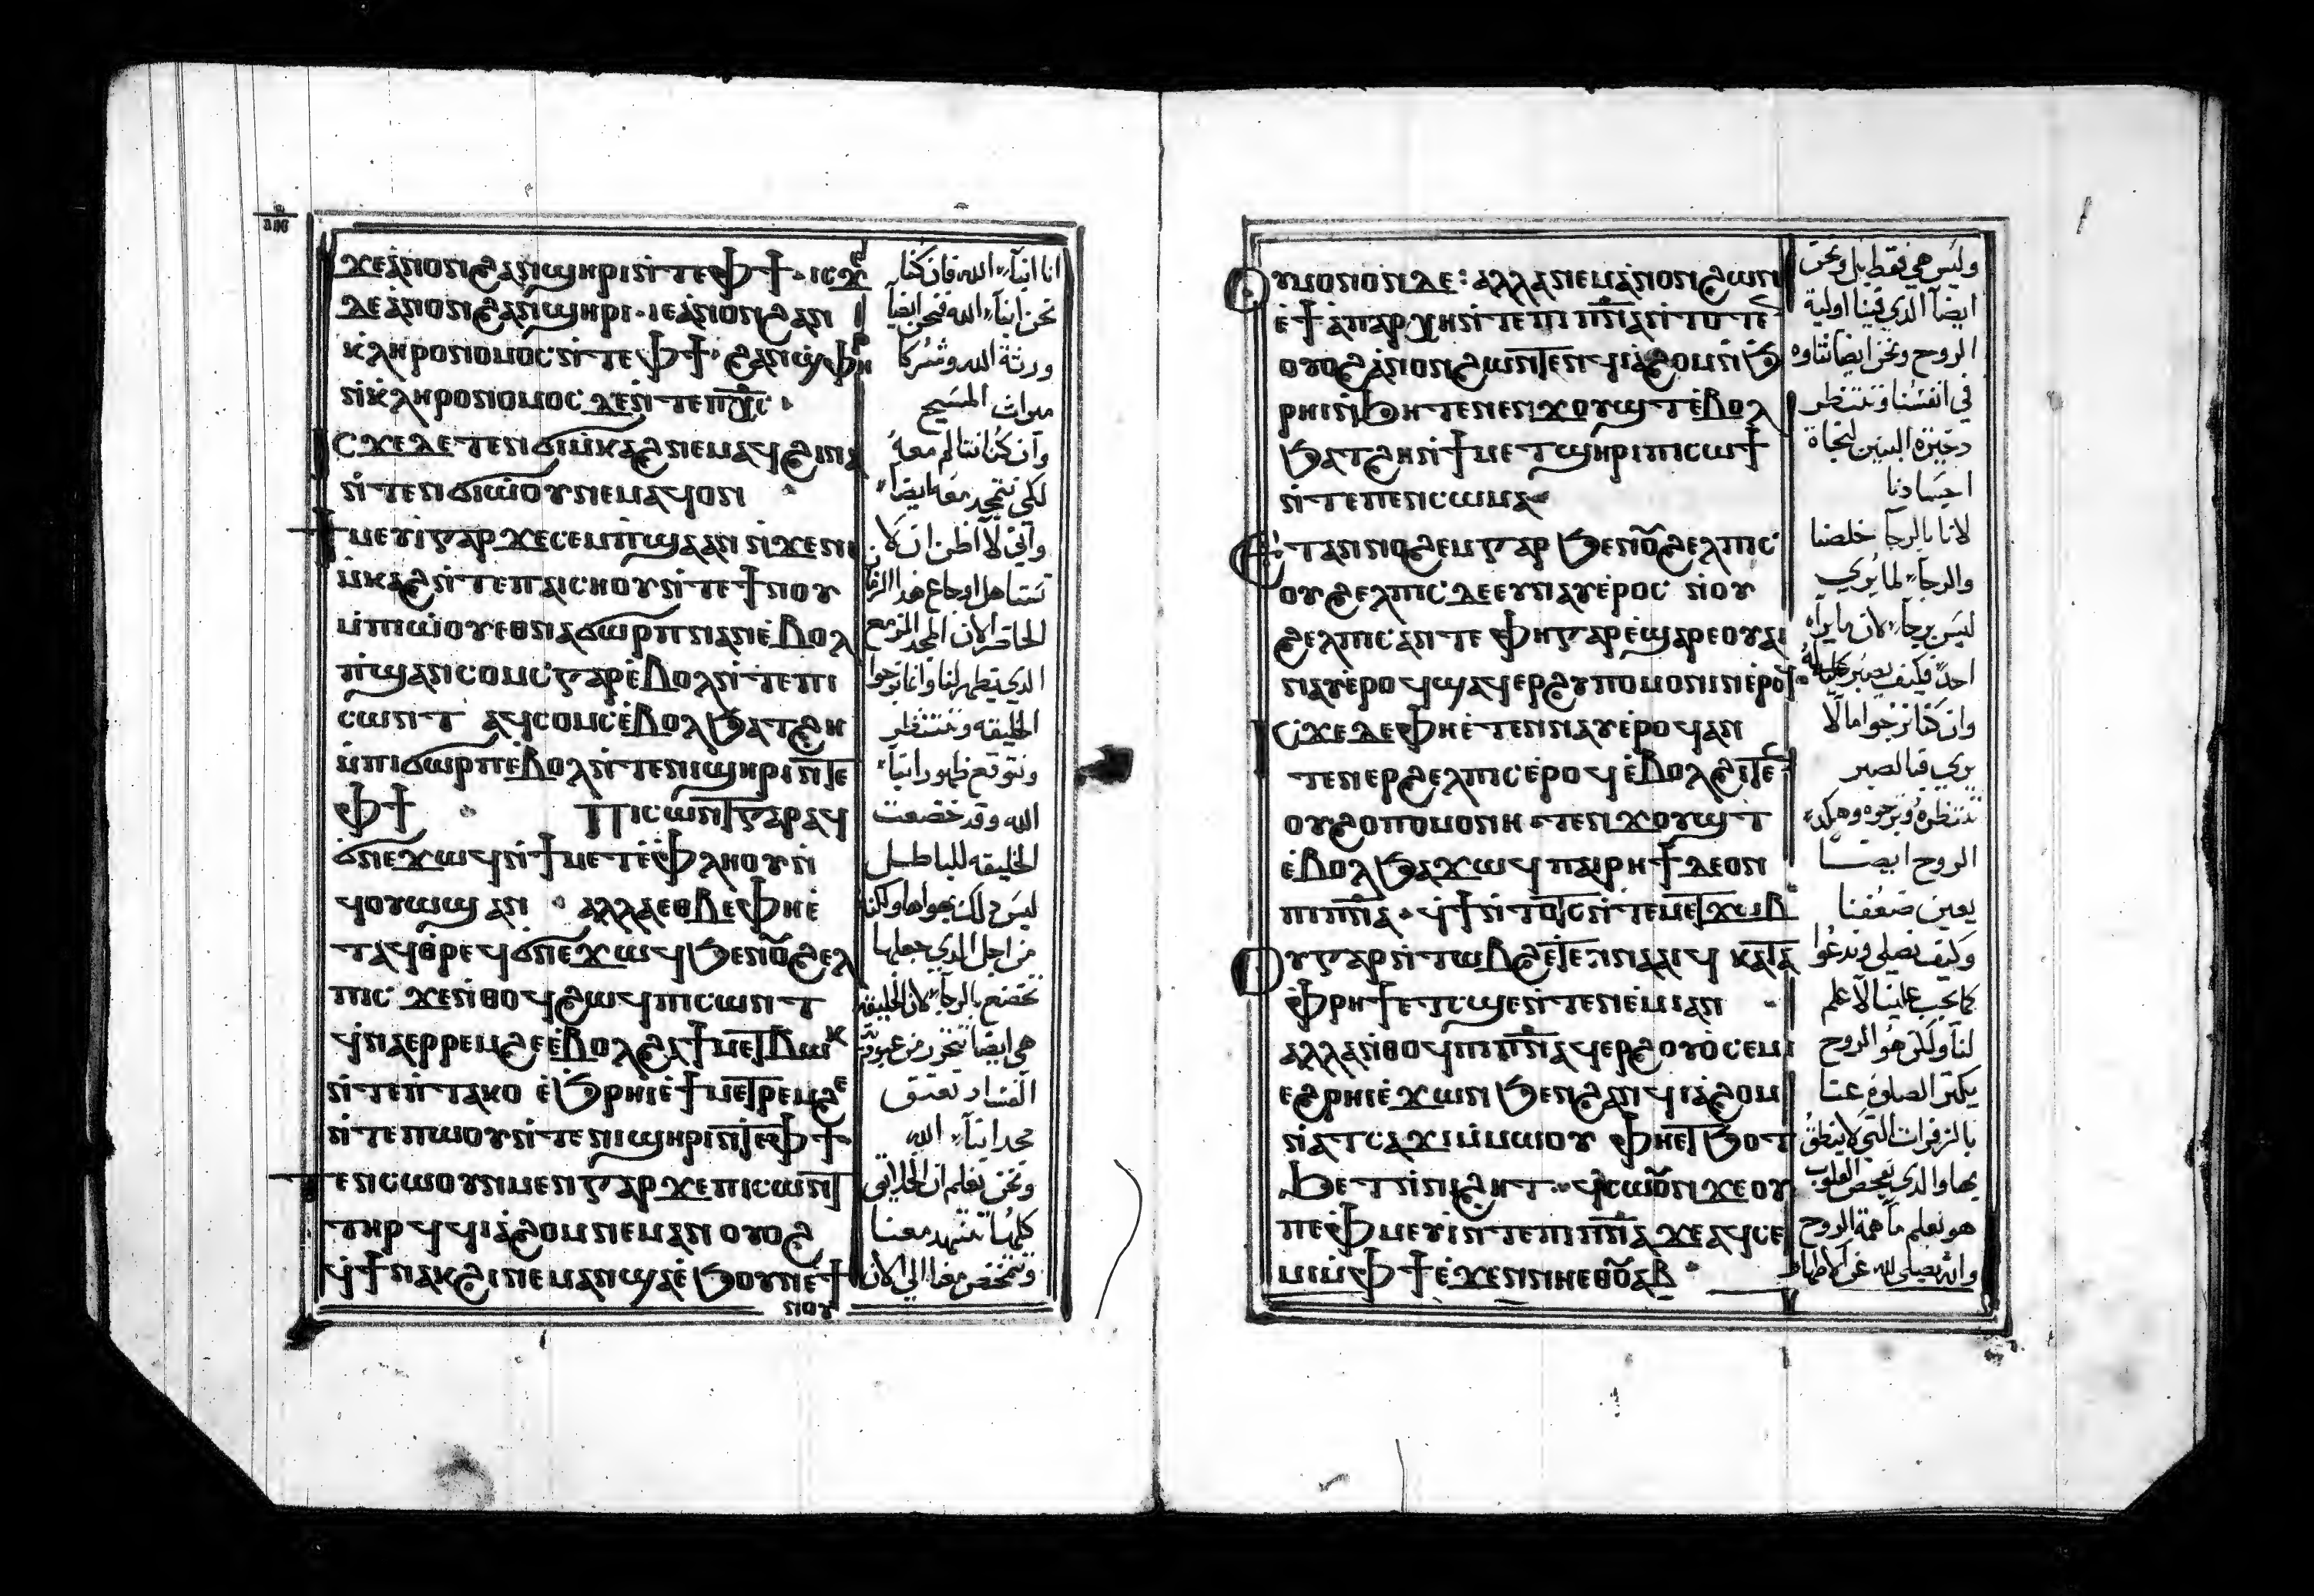 ϫⲉⲁ̀ⲛⲟⲛϩⲁⲛϣⲏⲣⲓⲛ̀ⲧⲉⲫϯ · ⲓⲥϫⲉ
ⲇⲉⲁ̀ⲛⲟⲛϩⲁⲛϣⲏⲣⲓ · ⲓⲉⲁ̀ⲛⲟⲛϩⲁⲛ
ⲕⲗⲏⲣⲟⲛⲟⲙⲟⲥⲛ̀ⲧⲉⲫϯ · ϩⲁⲛϣⲫⲏⲣ
ⲛ̀ⲕⲗⲏⲣⲟⲛⲟⲙⲟⲥ ⲇⲉⲛ̀ⲧⲉⲡⲭ̅ⲥ ·
ⲓⲥϫⲉⲇⲉⲧⲉⲛϭⲓⲙ̀ⲕⲁϩⲛⲉⲙⲁϥϩⲓⲛⲁ
ⲛ̀ⲧⲉⲛϭⲓⲱ̀ⲟⲩⲛⲉⲙⲁϥⲟⲛ
ϯⲙⲉⲩⲓ̀ⲅⲁⲣ ϫⲉⲥⲉⲙⲡ̀ϣⲁⲁⲛ ⲛ̀ϫⲉⲛⲓ
ⲙ̀ⲕⲁϩⲛ̀ⲧⲉⲡⲁⲓⲥⲏⲟⲩⲛ̀ⲧⲉϯⲛⲟⲩ
ⲙ̀ⲡⲓⲱ̀ⲟⲩⲉⲑⲛⲁϭⲱⲣⲡⲛⲁⲛⲉ̀ⲃⲟⲗ
ⲡ̀ϣⲁⲛⲥⲟⲙⲥⲅⲁⲣⲉ̀ⲃⲟⲗⲛ̀ⲧⲉⲡⲓ
ⲥⲱⲛⲧ ⲁϥⲥⲟⲙⲥⲉ̀ⲃⲟⲗϧⲁⲧϩⲏ
ⲙ̀ⲡⲓϭⲱⲣⲡⲉ̀ⲃⲟⲗⲛ̀ⲧⲉⲛⲓϣⲏⲣⲓⲛ̀ⲧⲉ
ⲫϯ · ⲡⲓⲥⲱⲛⲧⲅⲁⲣⲁϥ
ϭⲛⲉϫⲱϥⲛ̀ϯⲙⲉⲧⲉ̀ⲫⲗⲏⲟⲩⲛ̀
ϥⲟⲩⲱϣ ⲁⲛ · ⲁⲗⲗⲁⲉⲑⲃⲉⲫⲏⲉ̀
ⲧⲁϥⲑⲣⲉϥϭⲛⲉϫⲱϥϧⲉⲛⲟⲩϩⲉⲗ
ⲡⲓⲥ ϫⲉⲛ̀ⲑⲟϥϩⲱϥⲡⲓⲥⲱⲛⲧ
ϥ̀ⲛⲁⲉⲣⲣⲉⲙϩⲉⲉ̀ⲃⲟⲗϩⲁϯⲙⲉⲧⲃⲱⲕ
ⲛ̀ⲧⲉⲡ̀ⲧⲁⲕⲟ ⲉ̀ϧⲣⲏⲓⲉ̀ϯⲙⲉⲧⲣⲉⲙϩⲉ
ⲛ̀ⲧⲉⲡⲱⲟⲩⲛ̀ⲧⲉⲛⲓϣⲏⲣⲓⲛ̀ⲧⲉⲫϯ ·
ⲧⲉⲛⲥⲱⲟⲩⲛⲙⲉⲛⲅⲁⲣ ϫⲉⲡⲓⲥⲱⲛⲧ
ⲧⲏⲣϥ ϥϥⲓⲁ̀ϩⲟⲙⲛⲉⲙⲁⲛ ⲟⲩⲟϩ
ϥ̀ϯⲛⲁⲕϩⲓⲛⲉⲙⲁⲛϣⲁⲉ̀ϧⲟⲩⲛⲉ̀ϯ
ⲛⲟⲩ
انا ابنآء الله فان كنا
نحن ابنآء الله فنحن ايضاً
ورثة الله وشركا
ميراث المسيح
وان كنا نتالم معه
لكى نتمجد معه ايضاً
واني لا اظن ان
تستاهل اوجاع هذا الزمان
الحاضر الان المجد المزمع
الدي يظهر لنا وانا نرجوا
الخليقه وننتظر
ونتوقع ظهور ابنآء
الله وقد خضعت
الخليقه للباطل
ليس ذلك بهواها ولكن
من اجل الدي جعلها
تخضع بالرجآء لان الخليقه
هي ايضاً تتحرر من عبودية
الفساد تعتق
مجد ابنآء الله
ونحن نعلم ان الخلائق
كلها تتنهد معنا
وتتمخض معنا الى الان
ⲟⲩⲙⲟⲛⲟⲛ ⲇⲉ: ⲁⲗⲗⲁⲛⲉⲙⲁ̀ⲛⲟⲛϩⲱⲛ
ⲉ̀ϯⲁ̀ⲡⲁⲣⲭⲏⲛ̀ⲧⲉⲡⲓⲡ̅ⲛ̅ⲁ̅ⲛ̀ⲧⲟⲧⲉⲛ
ⲟⲩⲟϩⲁ̀ⲛⲟⲛϩⲱⲛⲧⲉⲛϥⲓⲁ̀ϩⲟⲙⲛ̀ϧ
ⲣⲏⲓⲛ̀ϧⲏⲧⲉⲛⲉⲛϫⲟⲩϣⲧⲉ̀ⲃⲟⲗ
ϧⲁⲧϩⲏⲛ̀ϯⲙⲉⲧϣⲏⲣⲓⲡⲓⲥⲱϯ
ⲛ̀ⲧⲉⲡⲉⲛⲥⲱⲙⲁ
ⲉ̀ⲧⲁⲛⲛⲟϩⲉⲙⲅⲁⲣ ϧⲉⲛⲟⲩϩⲉⲗⲡⲓⲥ
ⲟⲩϩⲉⲗⲡⲓⲥ ⲇⲉⲉⲩⲛⲁⲩⲉ̀ⲣⲟⲥ ⲛ̀ⲟⲩ
ϩⲉⲗⲡⲓⲥⲁⲛⲧⲉ ⲫⲏⲅⲁⲣⲉ̀ϣⲁⲣⲉⲟⲩⲁⲓ
ⲛⲁⲩⲉ̀ⲣⲟϥϣⲁϥⲉⲣϩⲩⲡⲟⲙⲟⲛⲓⲛⲉ̀ⲣⲟϥ
ⲓⲥϫⲉⲇⲉⲫⲏⲉ̀ⲧⲉⲛⲛⲁⲩⲉ̀ⲣⲟϥⲁⲛ
ⲧⲉⲛⲉⲣϩⲉⲗⲡⲓⲥⲉ̀ⲣⲟϥⲉ̀ⲃⲟⲗϩⲓⲧⲉⲛ
ⲟⲩϩⲟⲡⲟⲙⲟⲛⲏ · ⲧⲉⲛϫⲟⲩϣⲧ
ⲉ̀ⲃⲟⲗϧⲁϫⲱϥ ⲡⲁⲓⲣⲏϯⲇⲉⲟⲛ
ⲡⲓⲡ̅ⲛ̅ⲁ̅ · ϥ̀ϯⲛ̀ⲧⲟⲧⲥⲛ̀ⲧⲉⲙⲉⲧϫⲱⲃ
ⲟⲩⲅⲁⲣⲛ̀ⲧⲱⲃϩⲉ̀ⲧⲉⲛⲛⲁⲁⲓϥ ⲕⲁⲧⲁ
ⲫ̀ⲣⲏϯⲉⲧⲥϣⲉⲛ̀ⲧⲉⲛⲉ̀ⲙⲓⲁⲛ
ⲁⲗⲗⲁⲛ̀ⲑⲟϥⲡⲓⲡ̅ⲛ̅ⲁ̅ϥⲉⲣϩⲟⲩⲟ̀ⲥⲉⲙⲓ
ⲉϩⲣⲏⲓⲉ̀ϫⲱⲛ ϧⲉⲛϩⲁⲛϥⲓⲁ̀ϩⲟⲙ
ⲛ̀ⲁⲧⲥⲁϫⲓⲙ̀ⲙⲱⲟⲩ ⲫⲏⲉⲧϧⲟⲧ
ϧⲉⲧⲛ̀ⲛⲓϩⲏⲧ · ϥ̀ⲥⲱⲟⲩⲛ ϫⲉⲟⲩ
ⲡⲉⲫ̀ⲙⲉⲩⲓ̀ⲛⲧⲉⲡⲓⲡ̅ⲛ̅ⲁ̅ ϫⲉⲁϥⲥⲉ
ⲙⲓⲙ̀ⲫϯⲉ̀ϫⲉⲛⲛⲏⲉⲑⲟⲩⲁⲃ
وليس هي فقط بل ونحن
ايضاً الدي فينا اولية
الروح ونحن ايضاً نتاوه
في انفسنا وننتظر
دخيرة البنين لنجاة
اجسادنا
لانا بالرجآ خلصنا
والرجآء لما يُري
ليس برجآء لان ما يراه
احد فكيف يصبر عليه
وان كنا نرجوا ما لا
يري فبالصبر
ننتظره ونرجوه وهكدا
الروح ايضاً
يعين ضعفنا
وكيف نصلى وندعوا
كما يجب علينا لا علم
لنا ولكن هو الروح
يكثر الصلوه عنا
بالزفرات التي لا ينطق
بها والدي يفحص القلوب
هو يعلم ما همة الروح
وانه يصلى لله عن الاطهار